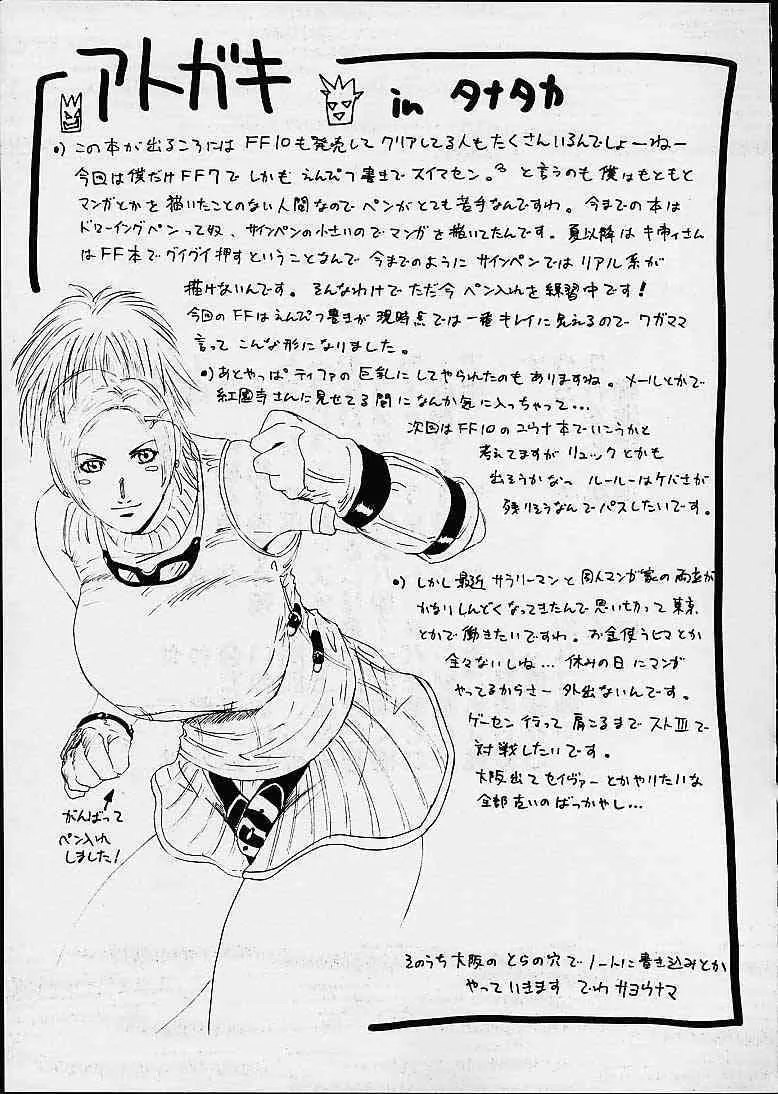 アトガキ
in タナタカ
•) この本が出るころには FF10も発売して クリアしてる人もたくさんいるんでしょーねー
今回は僕だけFF7で しかも えんぴつ書きで スイマセン。 と言うのも 僕はもともと
マンガとかを 描いたことのない人間なので ペンがとても苦手なんですわ。今までの本は
ドローイングペンって奴、サインペンの小さいので マンガを描いてたんです。夏以降は さん
はFF本でグイグイ押すということなんで 今までのように サインペンでは リアル系が
描けないんです。そんなわけで ただ今 ペン入れを練習中です!
今回のFFはえんぴつ書きが 現時点では一番キレイに見えるので ワガママ
言って こんな形になりました。
•) あとやっぱ ティファの巨乳に してやられたのも ありますね。 メールとかで
紅國寺さんに見せてる間に なんか気に入っちゃって…
次回は FF10のユウナ本で いこうかと
考えてますが リュック とかも
出そうかなっ ルールーは ケバさが
残りそうなんで パスしたいです。
•) しかし最近 サラリーマンと 同人マンガ家の両立が
かなりしんどくなってきたんで 思い切って 東京
とかで 働きたいですわ。お金使うヒマとか
全々ないしね… 休みの日にマンガ
やってるからさー 外出ないんです。
ゲーセン行って 肩こるまで ストⅢで
対戦したいです。
大阪出て セイヴァーとかやりたいな
全部古いのばっかやし…
がんばって
ペン入れ
しました!
そのうち大阪の とらの穴で ノートに書き込みとか
やっていきます でわ サヨウナマ